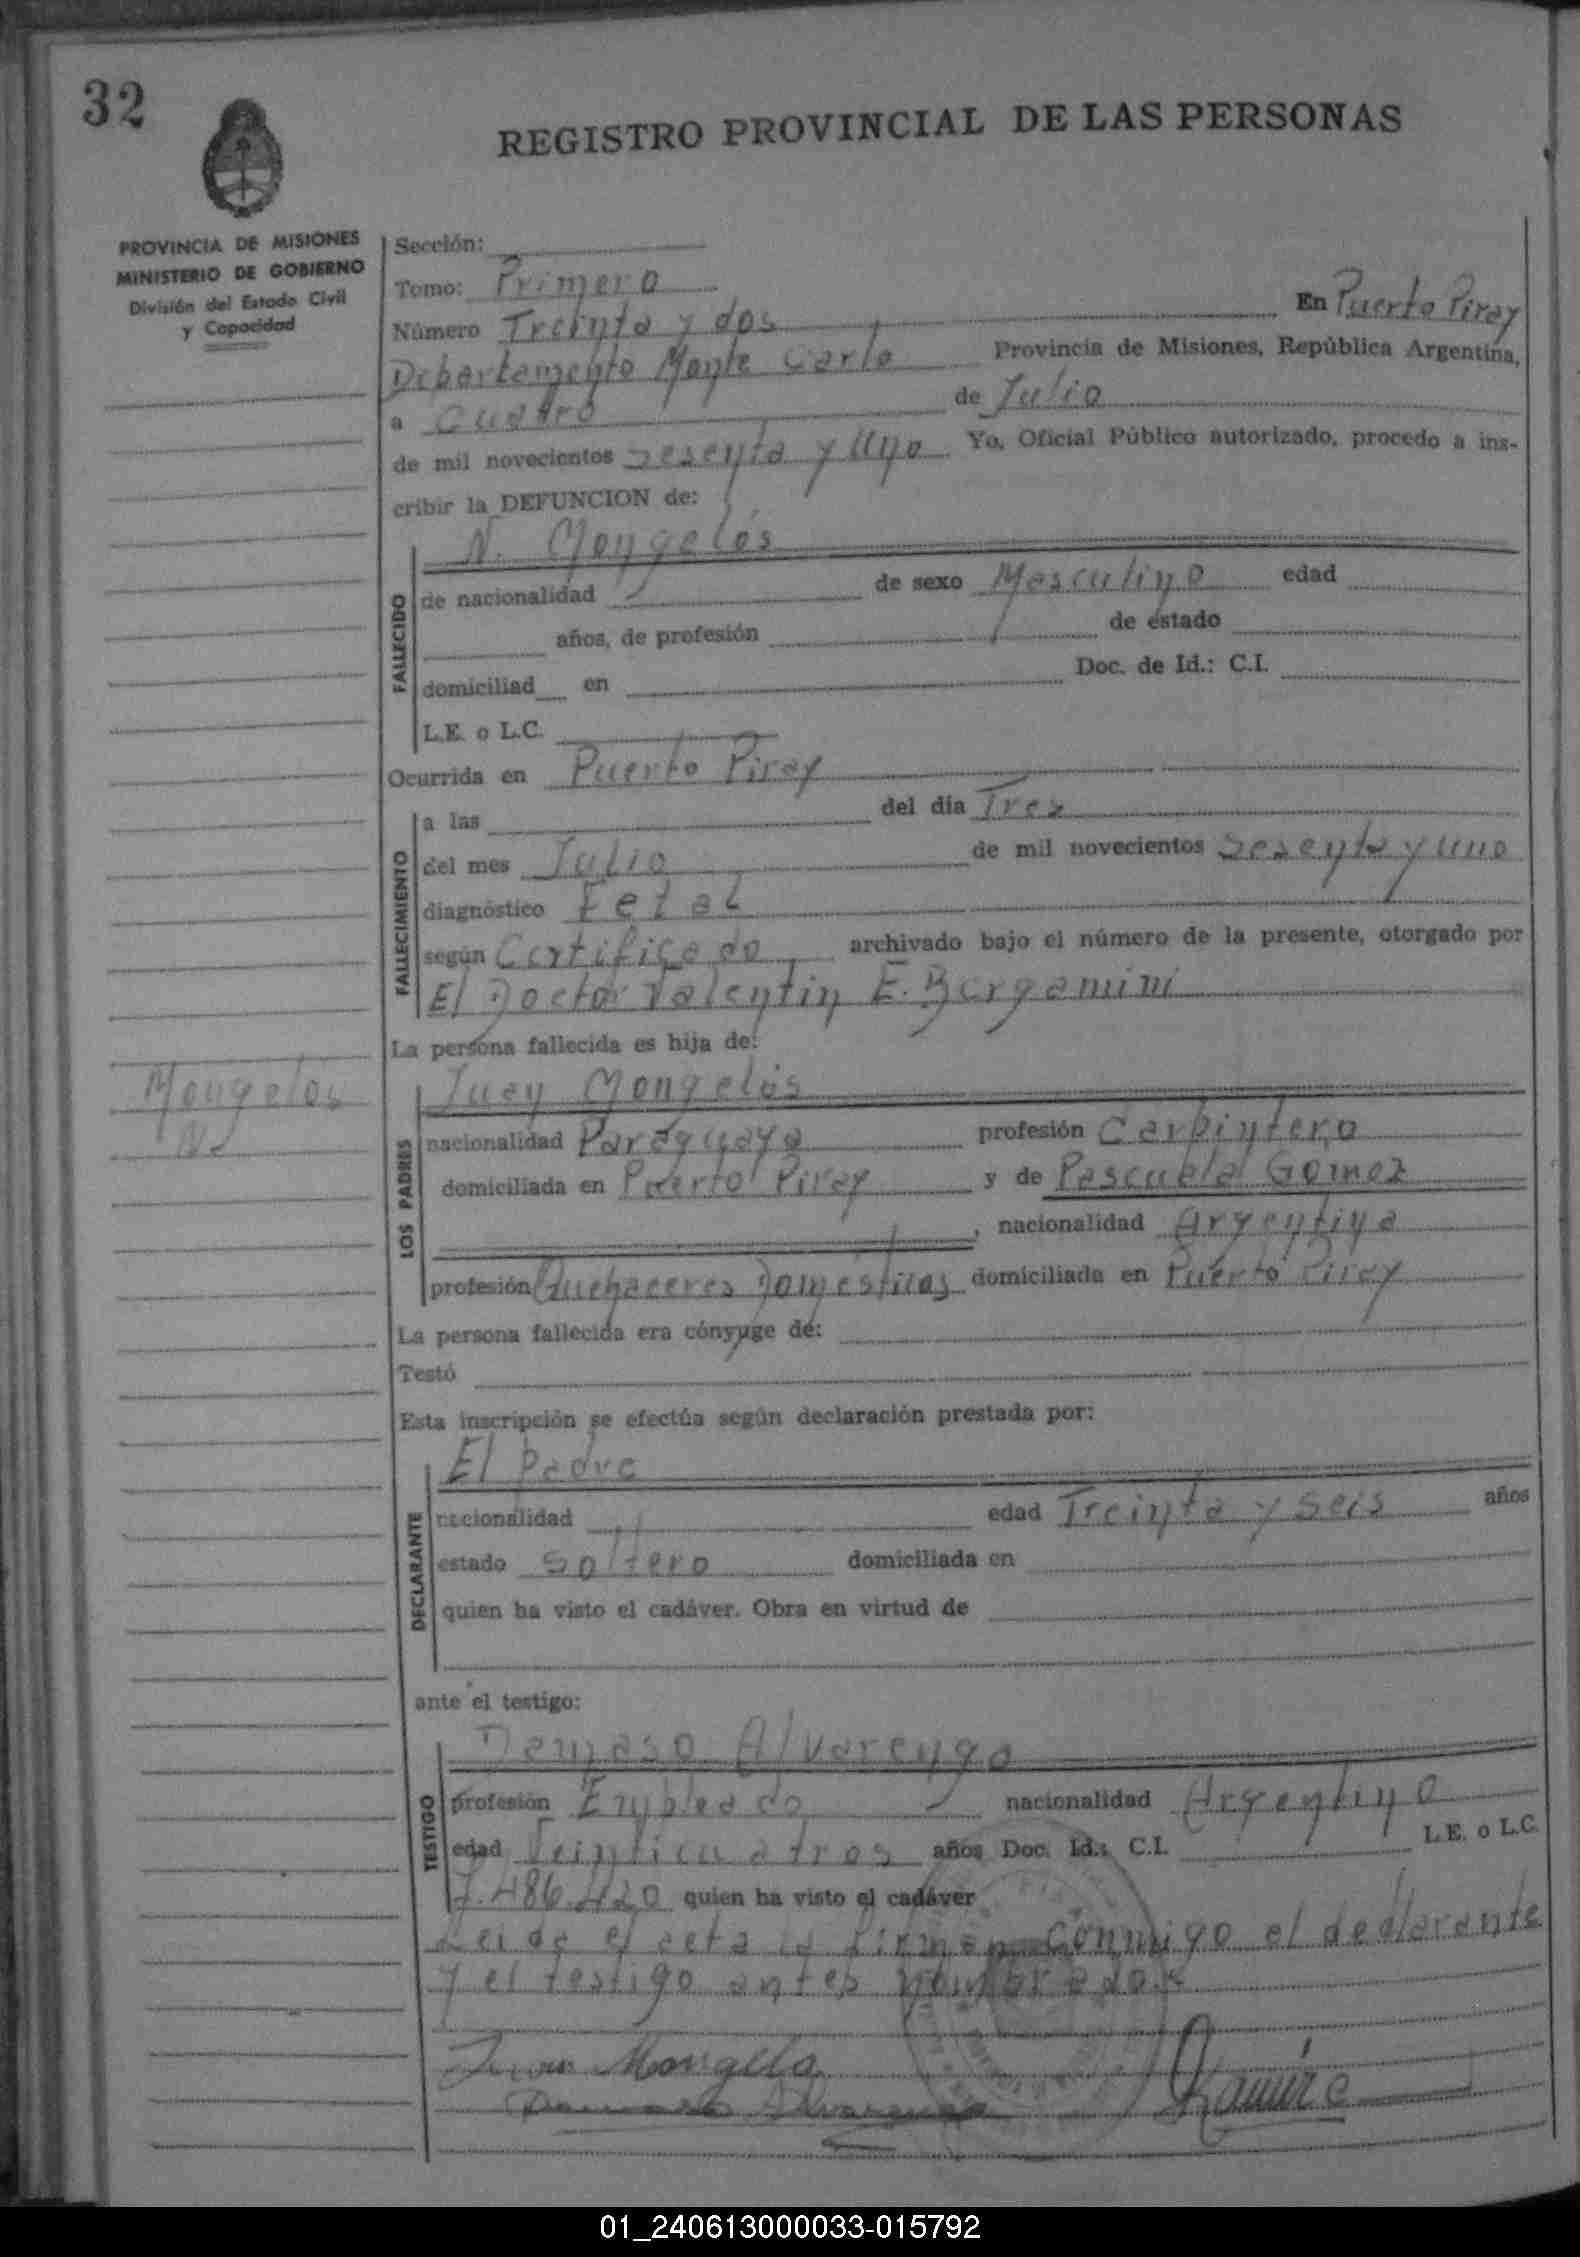 32
REGISTRO PROVINCIAL DE LAS PERSONAS
PROVINCIA DE MISIONES
MINISTERIO DE GOBIERNO
División del Estado Civil
y Capacidad
Sección:
Tomo: Primero
Número Treinta y dos En Puerto Piray
Departamento Monte Carlo Provincia de Misiones, República Argentina,
a Cuatro de Julio
de mil novecientos Sesenta y Uno Yo, Oficial Público autorizado, procedo a ins-
cribir la DEFUNCION de:
N. Mongelós
FALLECIDO
de nacionalidad de sexo Masculino edad
años, de profesión de estado
domiciliad en Doc. de Id.: C.I.
L.E. o L.C.
Ocurrida en Puerto Piray
FALLECIMIENTO
a las del día Tres
del mes Julio de mil novecientos Sesenta y uno
diagnóstico Fetal
según Certificado archivado bajo el número de la presente, otorgado por
El Doctor Valentin E. Bergamini
La persona fallecida es hija de:
Mongelós
N.
LOS PADRES
Juan Mongelós
nacionalidad Paraguaya profesión Carpintero
domiciliada en Puerto Piray y de Pascuala Gomez
, nacionalidad Argentina
profesión Quehaceres Domésticos domiciliada en Puerto Piray
La persona fallecida era cónyuge de:
Testó
Esta inscripción se efectúa según declaración prestada por:
El padre
DECLARANTE
nacionalidad edad Treinta y Seis años
estado soltero domiciliada en
quien ha visto el cadáver. Obra en virtud de
ante el testigo:
Damaso Alvarenga
TESTIGO
profesión Empleado nacionalidad Argentino
edad Veinticuatros años Doc. Id.: C.I. L.E. o L.C.
7.486.420 quien ha visto el cadáver
Leida el acta la firman conmigo el declarante
y el testigo antes nombrados
Juan Mongelo
Damaso Alvarenga
01_240613000033-015792